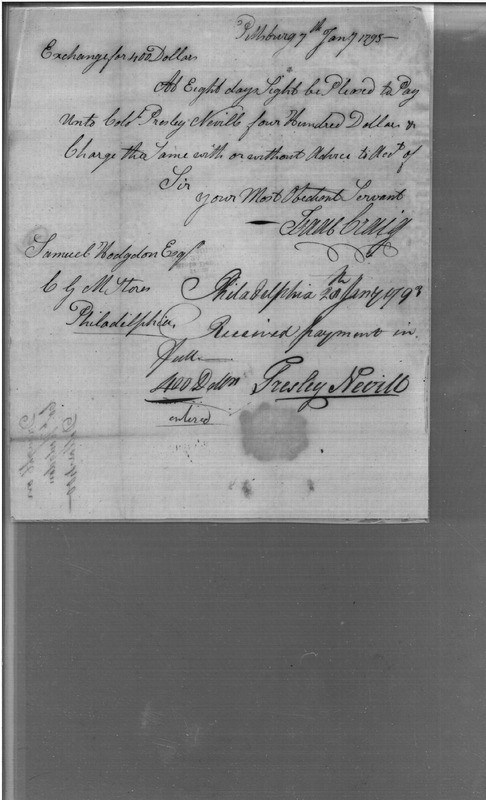 Pittsburg 7th Jany 1793 —
Exchange for 400 Dollars
At Eight days Sight be Pleased to Pay
Unto Colol. Presley Nevill four Hundred Dollars &
Charge the Same with or without Advice to Acct. of
Sir
your Most Obedient Servant
Isaac Craig
Samuel Hodgdon Esqr.
C G M Stores
Philadelphia
Philadelphia 20th Jany 1793
Received payment in
full
400 Dollars
Presley Nevill
entered